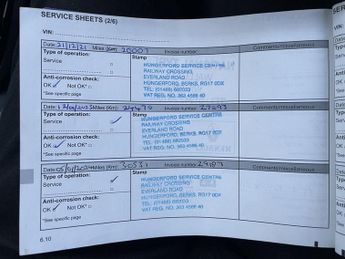 SERVICE SHEETS (2/6)
VIN:
Date: 21/12/21 Miles (Km): 20007 Invoice number: Comments/miscellaneous
Type of operation: Stamp
Service
HUNGERFORD SERVICE CENTRE
RAILWAY CROSSING
EVERLAND ROAD
Anti-corrosion check:
HUNGERFORD, BERKS. RG17 0DX
OK ✓ Not OK* □
TEL: (01488) 682033
*See specific page
VAT REG. NO. 363 4568 40
Date: Miles (Km): Invoice number: Comments/miscellaneous
Type of operation: Stamp
Service ✓
HUNGERFORD SERVICE CENTRE
RAILWAY CROSSING
EVERLAND ROAD
Anti-corrosion check:
HUNGERFORD, BERKS. RG17 0DX
OK ✓ Not OK* □
TEL: (01488) 682033
*See specific page
VAT REG. NO. 363 4568 40
Date: Miles (Km): Invoice number: Comments/miscellaneous
Type of operation: Stamp
Service ✓
HUNGERFORD SERVICE CENTRE
RAILWAY CROSSING
EVERLAND ROAD
Anti-corrosion check:
HUNGERFORD, BERKS. RG17 0DX
OK ✓ Not OK* □
TEL: (01488) 682033
*See specific page
VAT REG. NO. 363 4568 40
6.10